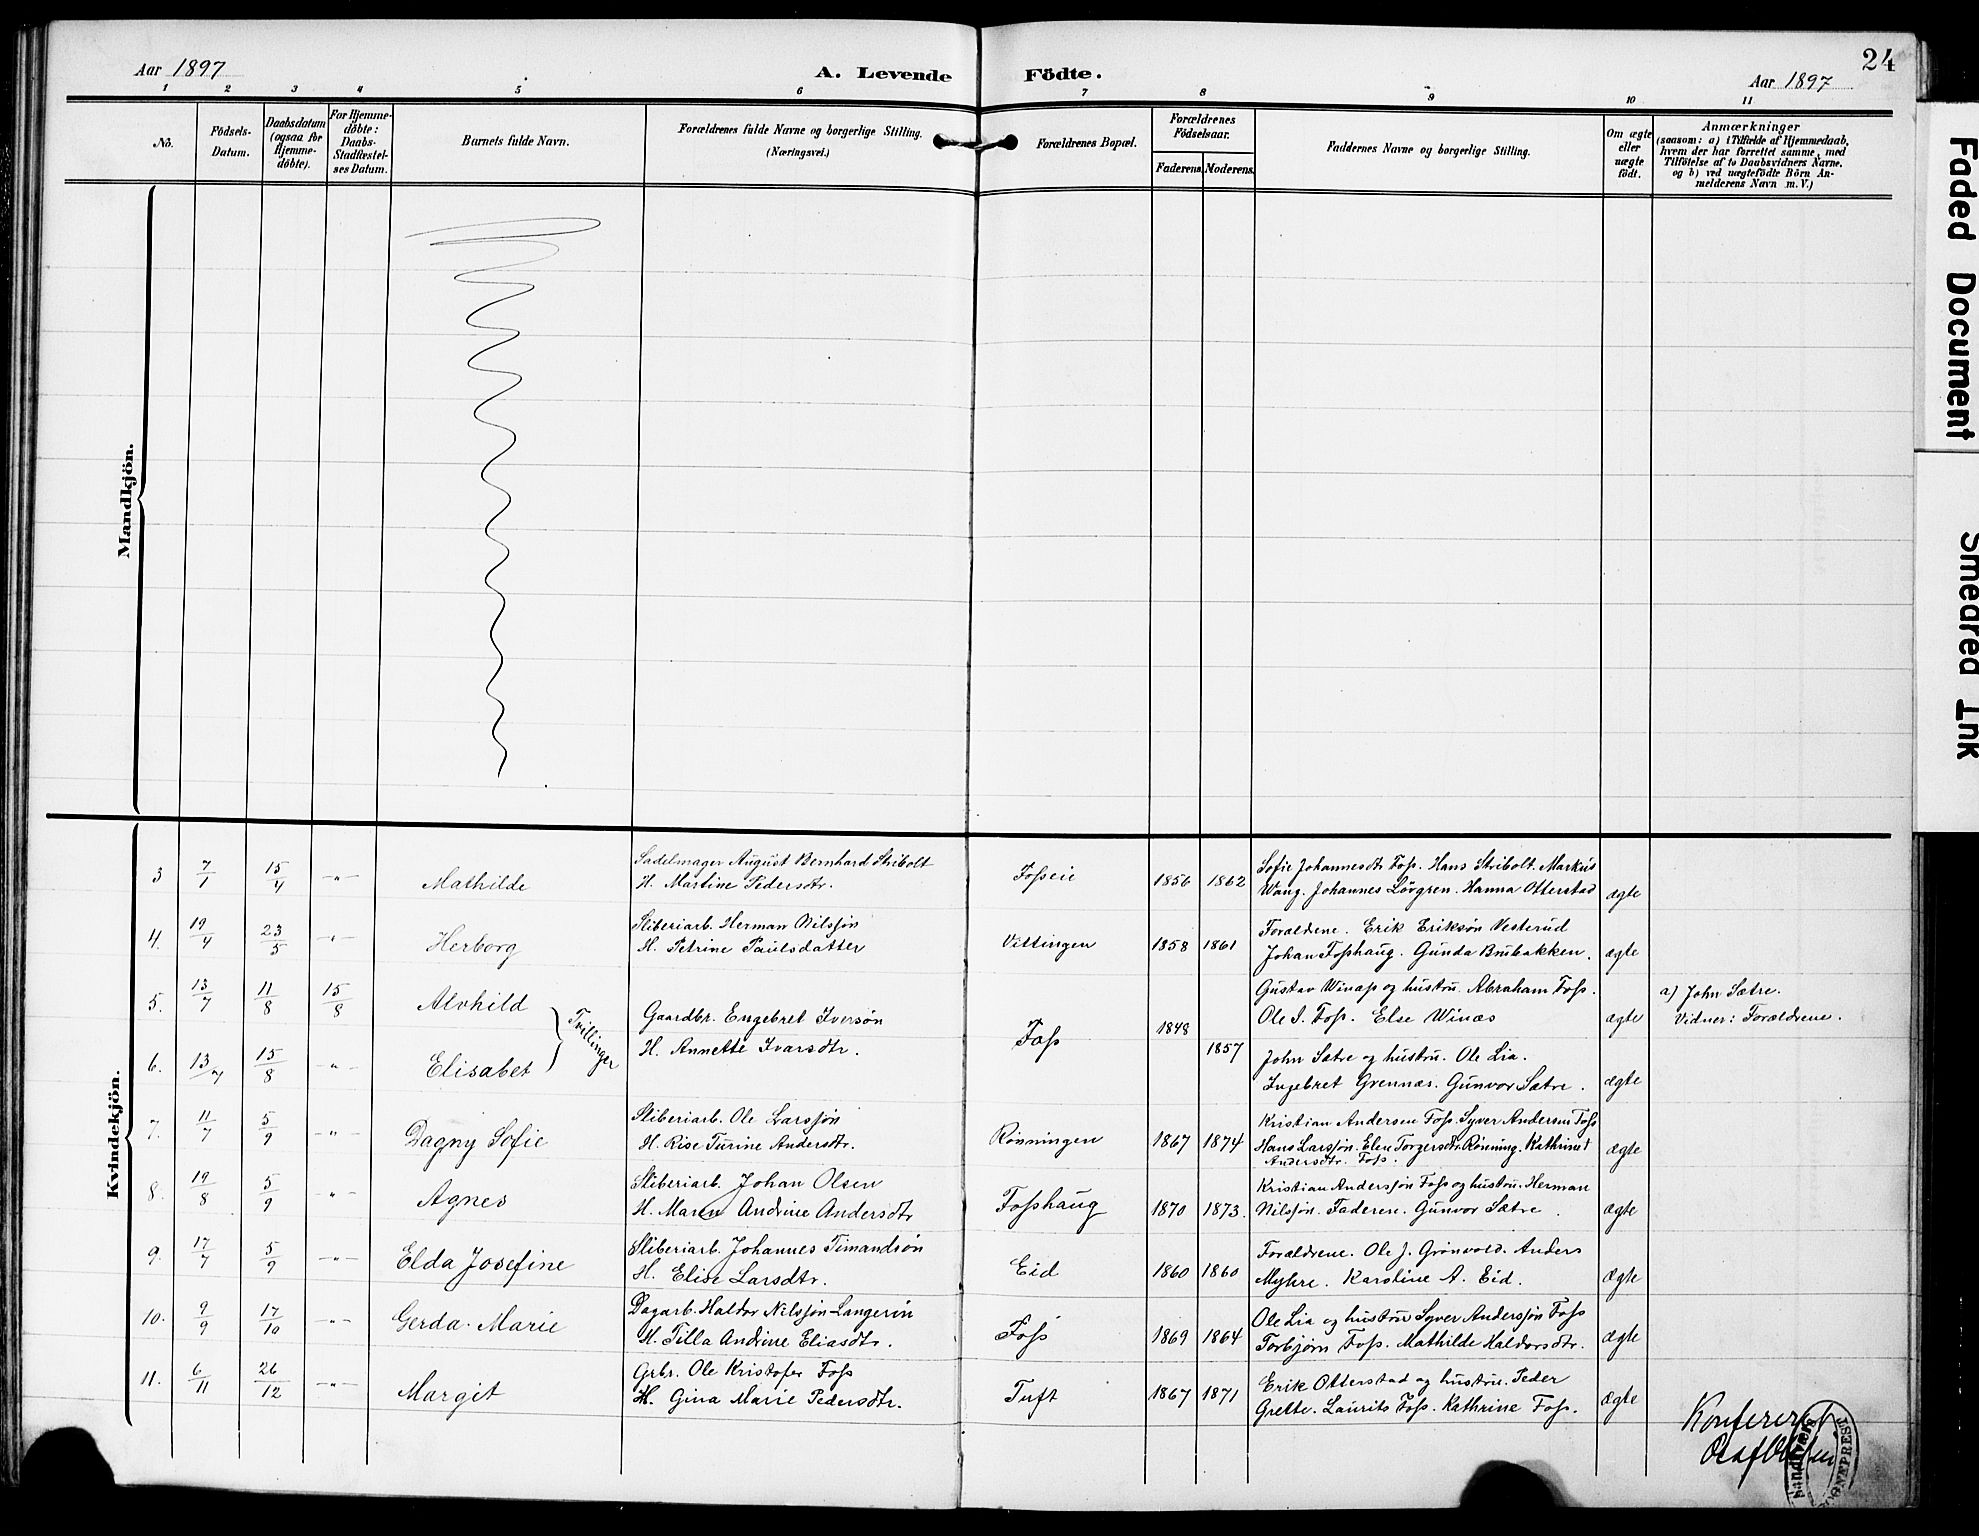 24
Aar 1897
A. Levende Födte.
Aar 1897
1 2 3 4 5 6 7 8 9 10 11
No.
Födsels-
Datum.
Daabsdatum
(ogsaa for
Hjemme-
döbte).
For Hjemme-
döbte:
Daabs-
Stadfæstel-
ses Datum.
Barnets fulde Navn.
Forældrenes fulde Navne og borgerlige Stilling.
(Næringsvei.)
Forældrenes Bopæl.
Forældrenes
Födselsaar.
Faderens. Moderens.
Faddernes Navne og borgerlige Stilling.
Om ægte
eller
uægte
födt.
Anmærkninger
(saasom: a) i Tilfælde af Hjemmedaab,
hvem der har forrettet samme, med
Tilföielse af to Daabsvidners Navne.
og b) ved uægtefödte Börn An-
melderens Navn m. V.)
Mandkjön.
Kvindekjön.
3 7/1 15/4 -"- Mathilde
Sadelmager August Bernhard Stribolt
H. Martine Pedersdtr.
Fosseie 1856 1862
Sofie Johannesdtr Foss. Hans Stribolt. Markus
Wang. Johannes Lövgren. Hanna Otterstad
ægte
4. 19/4 23/5 -"- Herborg
Sliberiarb. Herman Nilssøn
H. Petrine Paulsdatter
Vittingen 1858 1861
Forældrene. Erik Eriksøn Vesterud
Johan Fosshaug. Gunda Brubakken.
ægte
5. 13/7 11/8 15/8 Alvhild
6. 13/7 15/8 -"- Elisabet
Tvillinger
Gaardbr. Engebret Iversøn
H. Annette Ivarsdtr.
Foss 1848 1857
Gustav Winass og hustru. Abraham Foss.
Ole I. Foss. Else Winæs
ægte
a) John Sætre.
Vidner: Forældrene.
John Sætre og hustru. Ole Lia.
Ingebret Grennæs. Gunvor Sætre.
ægte
7. 11/7 5/9 -"- Dagny Sofie
Sliberiarb. Ole Larssøn
H. Rise Turine Andersdtr.
Rønningen 1867 1874
Kristian Andersen Foss. Syver Andersen Foss
Hans Larssøn. Elen Torgersdtr. Rønning. Kathrine
Andersdtr. Foss.
ægte
8. 19/8 5/9 -"- Agnes
Sliberiarb. Johan Olsen
H. Maren Andrine Andersdtr
Fosshaug 1870 1873.
Kristian Anderssøn Foss og hustru. Herman
Nilssøn. Faderen. Gunvor Sætre.
ægte
9. 17/7 5/9 -"- Elda Josefine
Sliberiarb. Johannes Timandsøn
H. Elise Larsdtr.
Eid 1860 1860
Forældrene. Ole J. Grönvold. Anders
Myhre. Karoline A. Eid.
ægte
10. 9/9 17/10 -"- Gerda Marie
Dagarb. Haldor Nilssøn-Langerin
H. Tilla Andrine Eliasdtr.
Foss 1869 1864
Ole Lia og hustru Syver Anderssøn Foss
Torbjørn Foss. Mathilde Haldorsdtr.
ægte
11. 6/11 26/12 -"- Margit
Grbr. Ole Kristofer Foss
H. Gina Marie Pedersdtr.
Tuft 1867 1871
Erik Otterstad og hustru. Peder
Grette. Laurits Foss. Kathrine Foss.
ægte
Konfereret
Faded Document
Smeared Ink